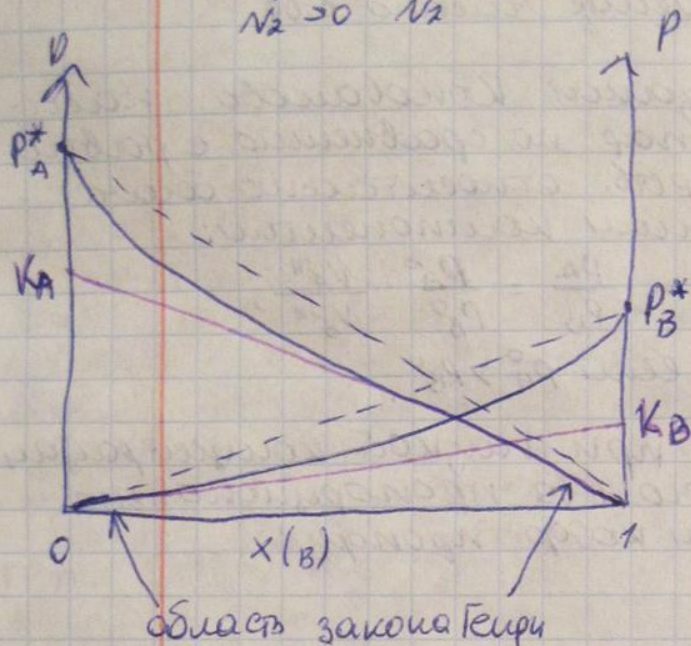 N₂→0 N₂
P P
P*A
KA
P*B
KB
0 X(B) 1
область закона Генри